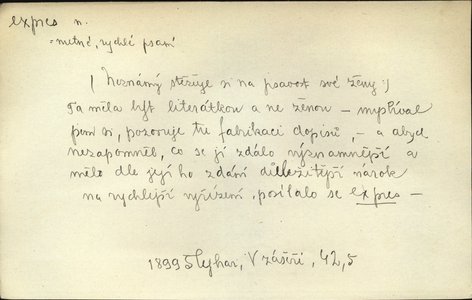 expres n.
= nutné, rychlé psaní
( Neznámý stěžuje si na psavost své ženy:)
Ta měla být literátkou a ne ženou – myslíval
jsem si, pozoruje tu fabrikaci dopisů, – a abych
nezapomněl, co se jí zdálo významnější a
mělo dle jejího zdání důležitější nárok
na rychlejší vyřízení, posílalo se expres –
1899 Tyhar, V zášeří, 42,5